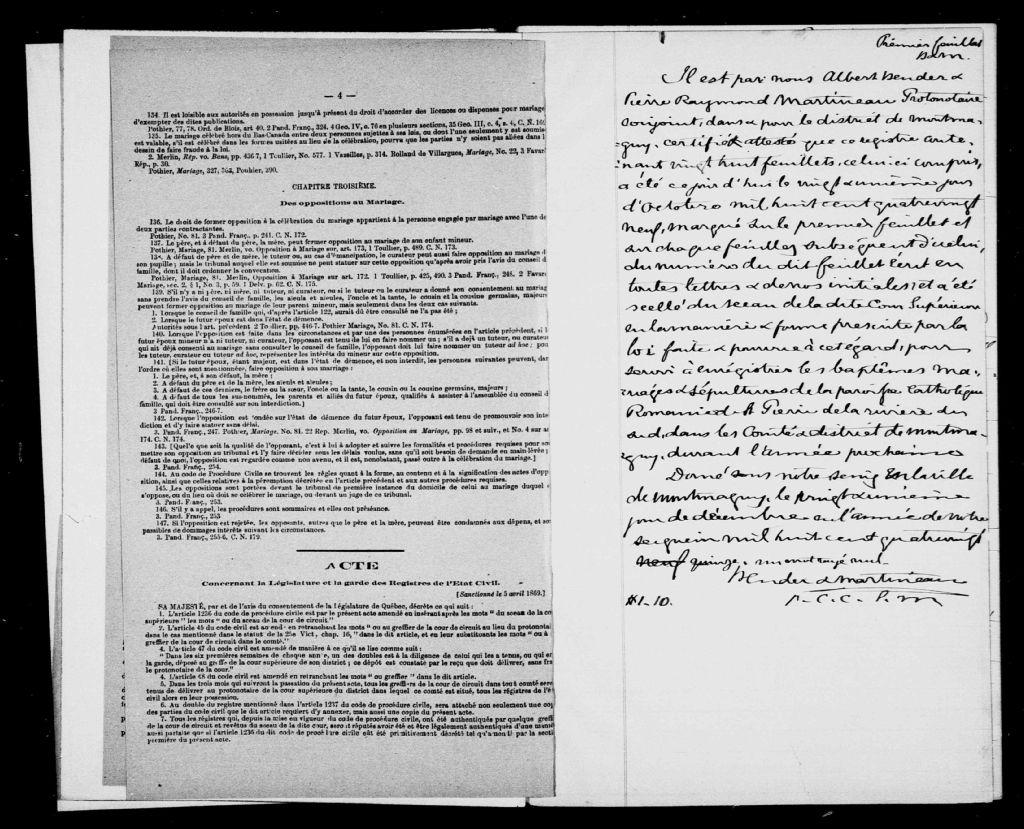 — 4 —
134. Il est loisible aux autorités en possession jusqu'à présent du droit d'accorder des licences ou dispenses pour mariage
d'exempter des dites publications.
Pothier, 77, 78. Ord. de Blois, art 40. 2 Pand. Franç., 324. 4 Geo. IV, c. 76 en plusieurs sections, 35 Geo. III, c. 4, s. 4, C. N. 169
135. Le mariage célébré hors du Bas-Canada entre deux personnes sujettes à ses lois, ou dont l'une seulement y est soumise
est valable, s'il est célébré dans les formes usitées au lieu de la célébration, pourvu que les parties n'y soient pas allées dans l
dessin de faire fraude à la loi.
2. Merlin, Rép. vo. Bans, pp. 436 7, 1 Toullier, No. 577. 1 Vazeilles, p. 314. Rolland de Villargues, Mariage, No. 22, 3 Favar
Rép., p. 36.
Pothier, Mariage, 327, 363, Pouhier, 390.
CHAPITRE TROISIÈME.
Des oppositions au Mariage.
136. Le droit de former opposition à la célébration du mariage appartient à la personne engagée par mariage avec l'une de
deux parties contractantes.
Pothier, No. 81. 3 Pand. Franç., p. 241. C. N. 172.
137. Le père, et à défaut du père, la mère, peut former opposition au mariage de son enfant mineur.
Pothier, Mariage, 81. Merlin, vo. Opposition à Mariage sur art. 173, 1 Toullier, p. 489. C. N. 173.
138. A défaut de père et de mère, le tuteur ou, au cas d'émancipation, le curateur peut aussi faire opposition au mariage d
son pupille; mais le tribunal auquel elle est soumise ne peut statuer sur cette opposition qu'après avoir pris l'avis du conseil d
famille, dont il doit ordonner la convocation.
Pothier, Mariage, 81. Merlin, Opposition à Mariage sur art. 172. 1 Toullier, p. 425, 490. 3 Pand. Franç., 248. 2 Favar
Mariage, sec. 2, § 1, No. 3, p. 59. 1 Delv. p. 62. C. N. 175.
139. S'il n'y a ni père, ni mère, ni tuteur, ni curateur, ou si le tuteur ou le curateur a donné son consentement au mariag
sans prendre l'avis du conseil de famille, les aïeuls et aïeules, l'oncle et la tante, le cousin et la cousine germains, majeurs
peuvent former opposition au mariage de leur parent mineur, mais seulement dans les deux cas suivants.
1. Lorsque le conseil de famille qui, d'après l'article 122, aurait dû être consulté ne l'a pas été;
2. Lorsque le futur époux est dans l'état de démence.
Autorités sous l'art. précédent 2 Toullier, pp. 446-7. Pothier Mariage, No. 81. C. N. 174.
140. Lorsque l'opposition est faite dans les circonstances et par une des personnes énumérées en l'article précédent, si l
futur époux mineur a ni tuteur, ni curateur, l'opposant est tenu de lui en faire nommer un; s'il a déjà un tuteur, ou curateur
qui ait déjà consenti au mariage sans consulter le conseil de famille, l'opposant doit lui faire nommer un tuteur ad hoc; pou
les tuteur, curateur ou tuteur ad hoc, représenter les intérêts du mineur sur cette opposition.
141. [Si le futur époux, étant majeur, est dans l'état de démence, et non interdit, les personnes suivantes peuvent, dan
l'ordre où elles sont mentionnées, faire opposition à son mariage:
1. Le père, et, à son défaut, la mère;
2. A défaut du père et de la mère, les aïeuls et aïeules;
3. A défaut de ces derniers, le frère ou la sœur, l'oncle ou la tante, le cousin ou la cousine germains, majeurs;
4. A défaut de tous les sus-nommés, les parents et alliés du futur époux, qualifiés à assister à l'assemblée du conseil d
famille, qui doit être consulté sur son interdiction.]
3 Pand Franç., 246-7.
142. Lorsque l'opposition est fondée sur l'état de démence du futur époux, l'opposant est tenu de promouvoir son inte
diction et d'y faire statuer sans délai.
3. Pand. Franç., 247. Pothier, Mariage. No. 81. 22 Rep. Merlin, vo. Opposition au Mariage, pp. 98 et suiv., et No. 4 sur a
174. C. N. 174.
143. [Quelle que soit la qualité de l'opposant, c'est à lui à adopter et suivre les formalités et procédures requises pour sou
mettre son opposition au tribunal et l'y faire décider sous les délais voulus, sans qu'il soit besoin de demande en main-levée;
défaut de quoi, l'opposition est regardée comme non avenu, et il est, nonobstant, passé outre à la célébration du mariage.]
3. Pand. Franç., 254.
144. Au code de Procédure Civile se trouvent les règles quant à la forme, au contenu et à la signification des actes d'opp
sition, ainsi que celles relatives à la péremption décrétée en l'article précédent et aux autres procédures requises.
145. Les oppositions sont portées devant le tribunal de première instance du domicile de celui au mariage duquel o
s'oppose, ou du lieu où doit se célébrer le mariage, ou devant un juge de ce tribunal.
3. Pand. Franç., 253.
146. S'il y a appel, les procédures sont sommaires et elles ont présénce.
3. Pand. Franç., 253
147. Si l'opposition est rejetée, les opposants, autres que le père et la mère, peuvent être condamnés aux dépens, et son
passibles de dommages intérêts suivant les circonstances.
3. Pand. Franç., 255-6. C. N. 179.
ACTE
Concernant la Législature et la garde des Registres de l'Etat Civil.
[Sanctionné le 5 avril 1869.]
SA MAJESTÉ, par et de l'avis du consentement de la Législature de Québec, décrète ce qui suit:
1. L'article 1236 du code de procédure civile est par le présent acte amendé en insérant après les mots "du sceau de la co
supérieure" les mots "ou du sceau de la cour de circuit."
2. L'article 45 du code civil est amendé en retranchant les mots "ou au greffier de la cour de circuit au lieu du protonotai
dans le cas mentionné dans le statut de la 25e Vict, chap. 16," dans le dit article, et en leur substituants les mots "ou à
greffier de la cour de circuit dans le comté."
3. L'article 47 du code civil est amendé de manière à ce qu'il se lise comme suit:
"Dans les six premières semaines de chaque année, un des doubles est à la diligence de celui qui les a tenus, ou qui en
la garde, déposé au greffe de la cour supérieure de son district; ce dépôt est constaté par le reçu que doit délivrer, sans fra
le protonotaire de la cour."
4. L'article 68 du code civil est amendé en retranchant les mots "ou greffier" dans le dit article.
5. Dans les trois mois qui suivront la passation du présent acte, tous les greffiers de la cour de circuit dans tout comté sero
tenus de délivrer au protonotaire de la cour supérieure du district dans lequel ce comté est situé, tous les régistres de l'é
civil alors en leur possession.
6. Au double du registre mentionné dans l'article 1237 du code de procédure civile, sera attaché non seulement une cop
des parties du code civil que le dit article requiert d'y annexer, mais aussi une copie du présent acte.
7. Tous les régistres qui, depuis la mise en vigueur du code de procédure civile, ont été authentiqués par quelque greffi
de la cour de circuit et revêtus du sceau de la dite cour, seront réputés avoir été et être légalement authentiqués d'une mani
aussi parfaite que si l'article 1236 du dit code de procédure civile eût été primitivement décrété tel qu'amendé par la secti
première du présent acte.
Premier feuillet
B & M.
Il est par nous Albert Bender &
Pierre Raymond Martineau Protonotaire
conjoint, dans & pour le district de Montma-
gny, certifié & attesté que ce registre conte-
nant vingt huit feuillets, celui ci compris,
a été ce jour d'hui le vingt & unième jour
d'Octobre mil huit cent quatrevingt
neuf, marqué sur le premier feuillet et
sur chaque feuillet subsequent d'icelui,
du numéro du dit feuillet écrit en
toutes lettres & de nos initiales et a été
scellé du sceau de la dite Cour Supérieure
en la manière & forme prescrite par la
loi faite & pourvue à cet égard, pour
servir à enregistrer les baptêmes ma-
riages & sépultures de la paroisse Catholique
Romaine de St Pierre de la rivière du
sud, dans les Comté & district de Montma-
gny, durant l'année prochaine
Donné sous notre seing En la ville
de Montmagny, le vingt & unième
jour de décembre en l'année de notre
seigneur mil huit cent quatrevingt
neuf quinze, un mot rayé nul.
Bender & Martineau
P. C. C. S. M
$1-10.